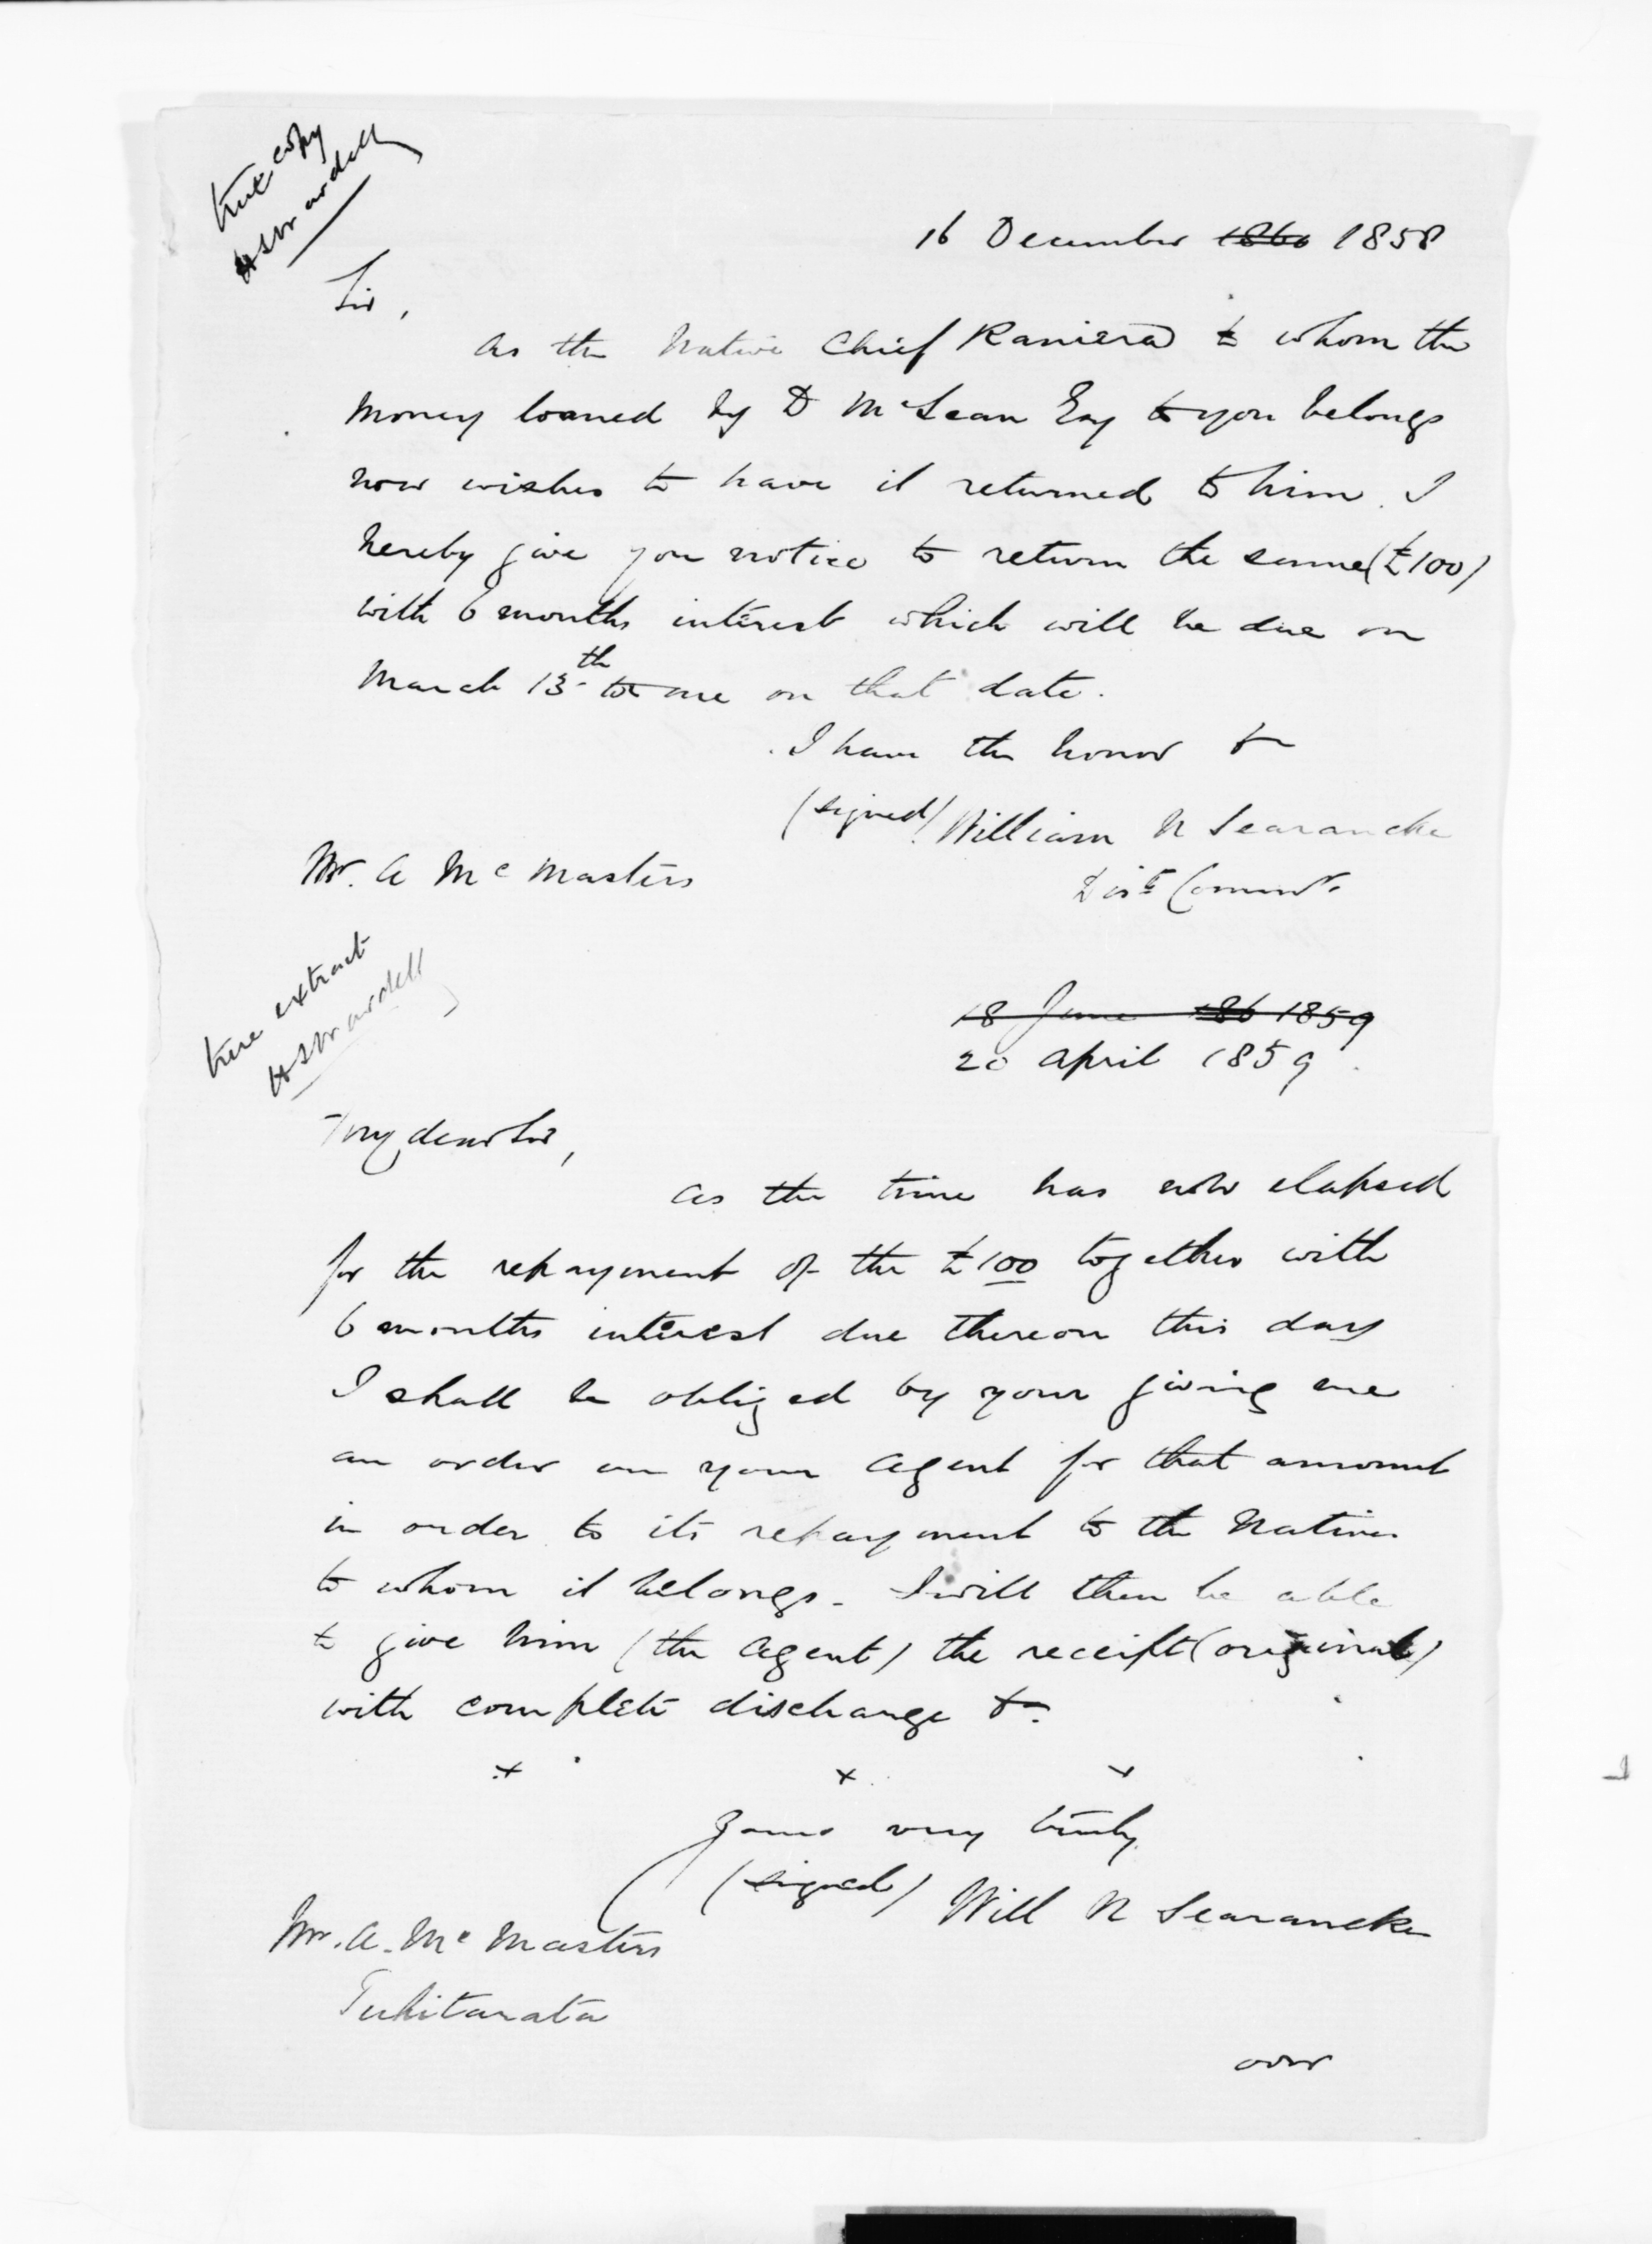 true copy
HSWardell
16 December 1860 1858
Sir,
As the Native Chief Raniera to whom the
money loaned by D McLean Esq to you belongs
now wishes to have it returned to him. I
hereby give you notice to return the same (£100)
with 6 months interest which will be due on
March 13th to me on that date.
I have the honor &c
(signed) William N Searancke
Dist Commr.
Mr. A McMasters
true extract
HSWardell
18 June 186 1859
20 April 1859.
My dear Sir,
As the time has now elapsed
for the repayment of the £100 together with
6 months interest due thereon this day
I shall be obliged by your giving me
an order on your Agent for that amount
in order to its repayment to the Natives
to whom it belongs. I will then be able
to give him (the Agent) the receipt (original)
with complete discharge &c.
x x x
Yours very truly
(signed) Will N Searancke
Mr. A. McMasters
Tuhitarata
over